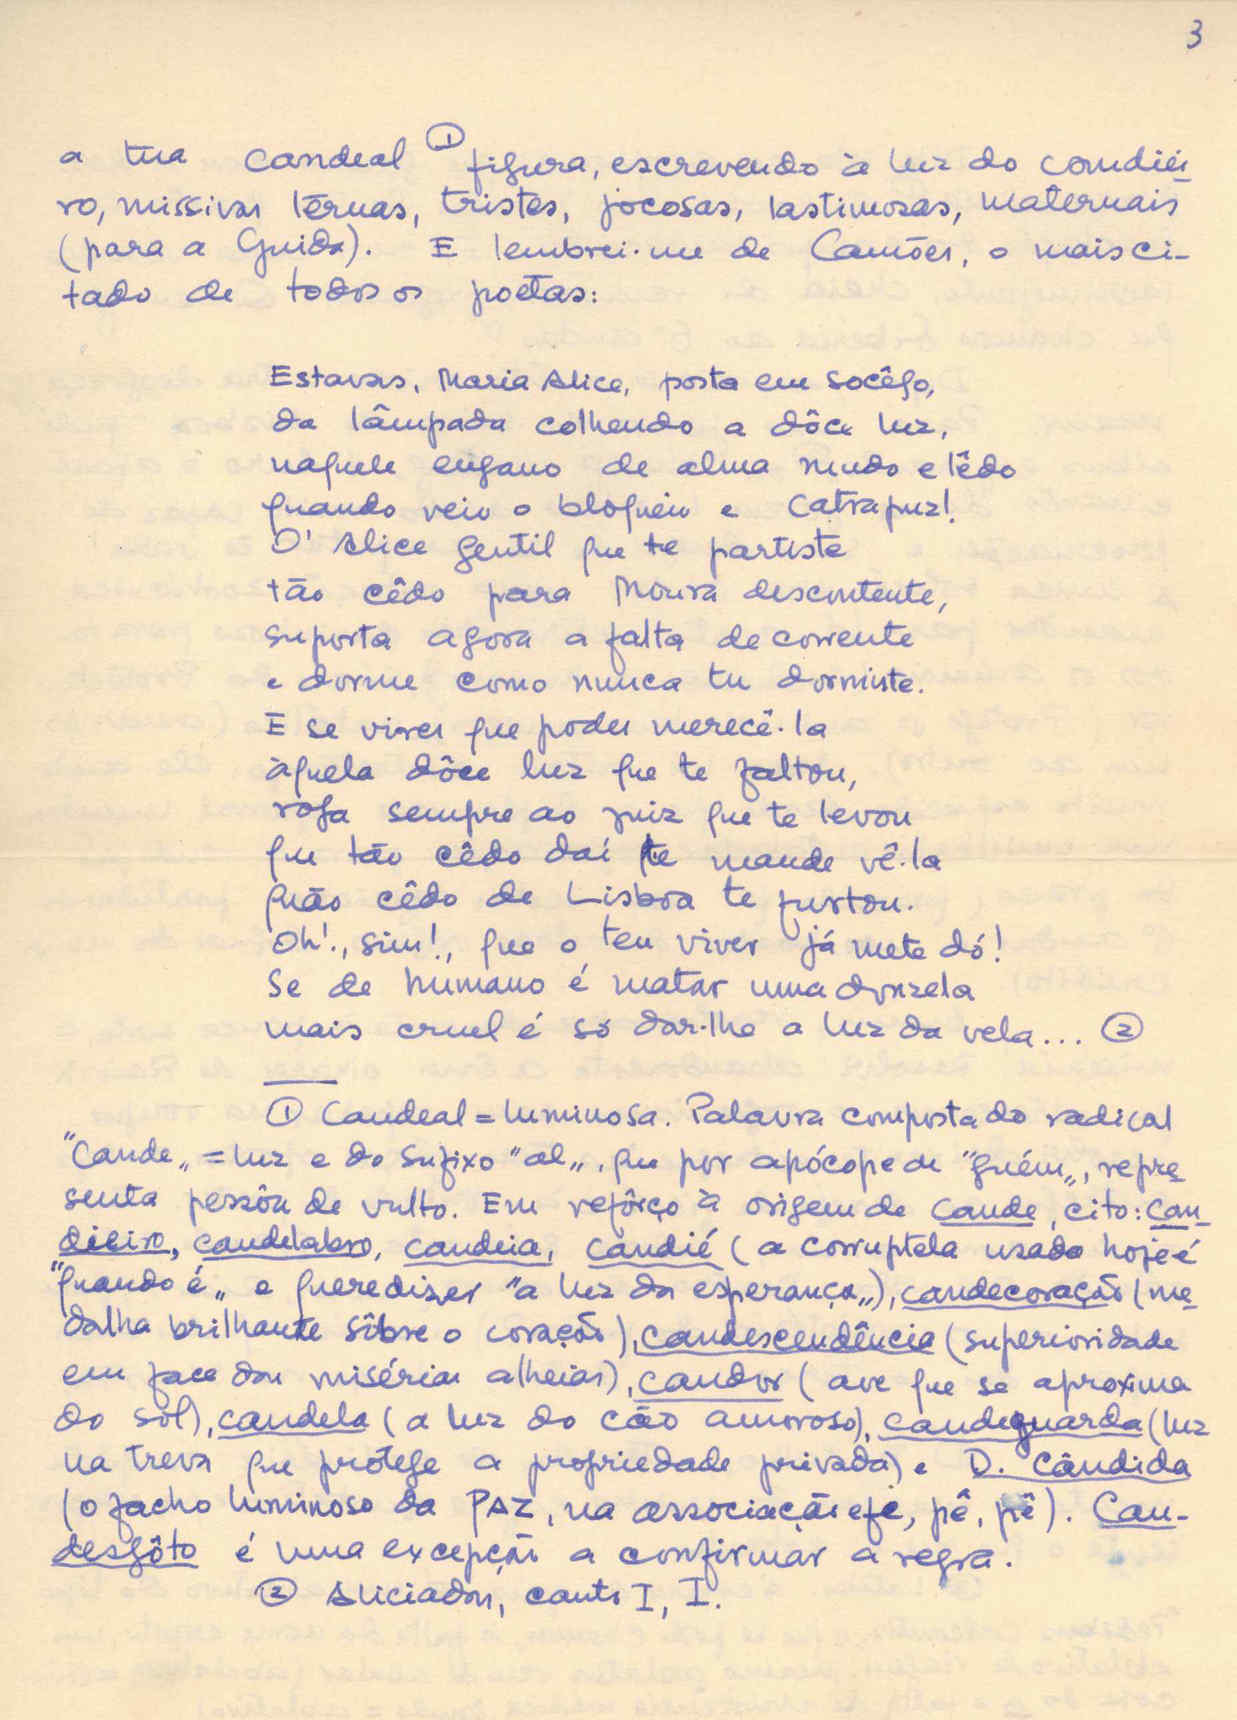 3
a tua candeal ① figura, escrevendo à luz do candiei-
ro, missivas ternas, tristes, jocosas, lastimosas, maternais
(para a Guida). E lembrei-me de Camões, o mais ci-
tado de todos os poetas:
Estavas, Maria Alice, posta em socêgo,
da lâmpada colhendo a dôce luz,
naquele engano de alma mudo e lêdo
quando veio o bloqueio e catrapuz!
O' Alice gentil que te partiste
tão cêdo para Moura descontente,
suporta agora a falta de corrente
e dorme como nunca tu dormiste.
E se vires que podes merecê-la
àquela dôce luz que te faltou,
roga sempre ao juiz que te levou
que tão cêdo daí te mande vê-la
quão cêdo de Lisboa te furtou.
Oh!, sim!, que o teu viver já mete dó!
Se de humano é matar uma donzela
mais cruel é só dar-lhe a luz da vela... ②
① Candeal = luminosa. Palavra composta do radical
"Cande" = luz e do sufixo "al", que por apócope de "guém", repre-
senta pessôa de vulto. Em refôrço à origem de cande, cito: can-
dieiro, candelabro, candeia, candié (a corruptela usada hoje é
"quando é" e quere dizer "a luz da esperança"), candecoração (me-
dalha brilhante sôbre o coração), candescendência (superioridade
em face das misérias alheias), candor (ave que se aproxima
do sol), candela (a luz do cão amoroso), candeguarda (luz
na treva que protege a propriedade privada) e D. Cândida
(o facho luminoso da PAZ, na associação efe, pê, pê). Can-
desgôto é uma excepção a confirmar a regra.
② Aliciadas, canto I, I.